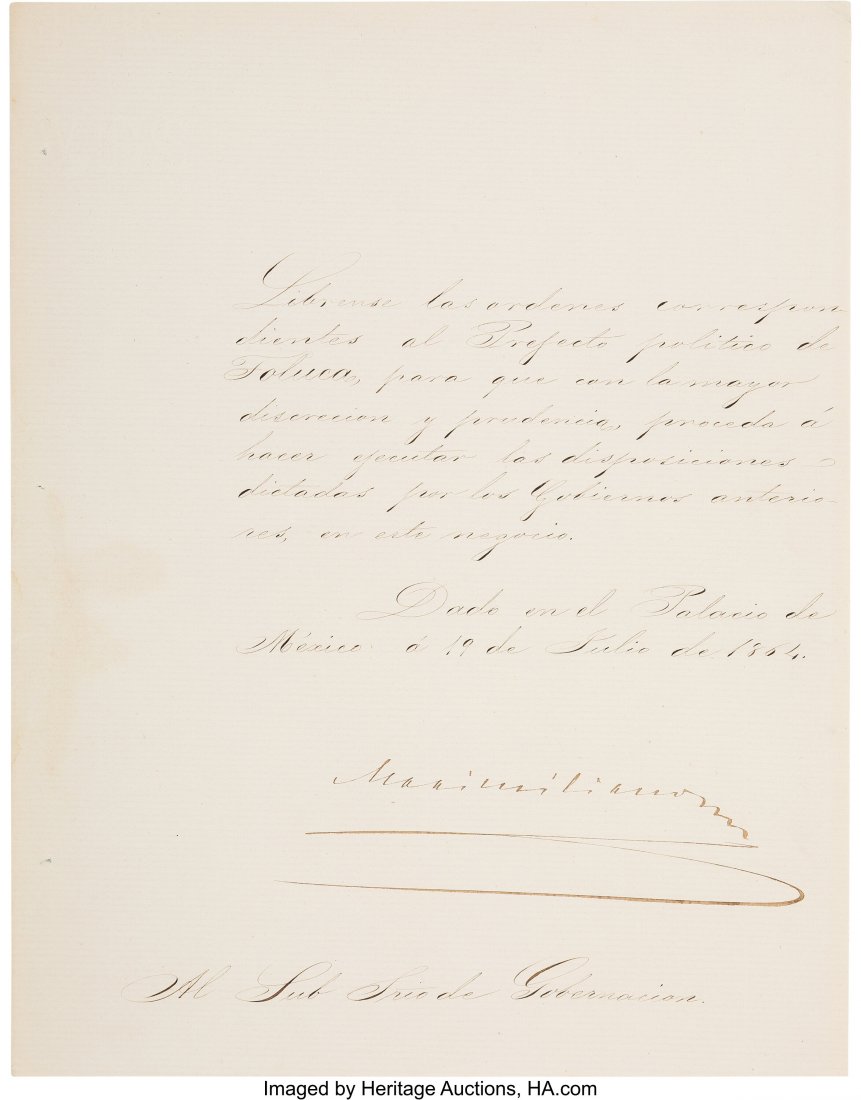 Librense las ordenes correspon-
dientes al Prefecto politico de
Toluca, para que con la mayor
discrecion y prudencia, proceda á
hacer ejecutar las disposiciones
dictadas por los Gobiernos anterio-
res, en este negocio.
Dado en el Palacio de
México á 19 de Julio de 1864.
Maximiliano
Al Sub Srio de Gobernacion.
Imaged by Heritage Auctions, HA.com